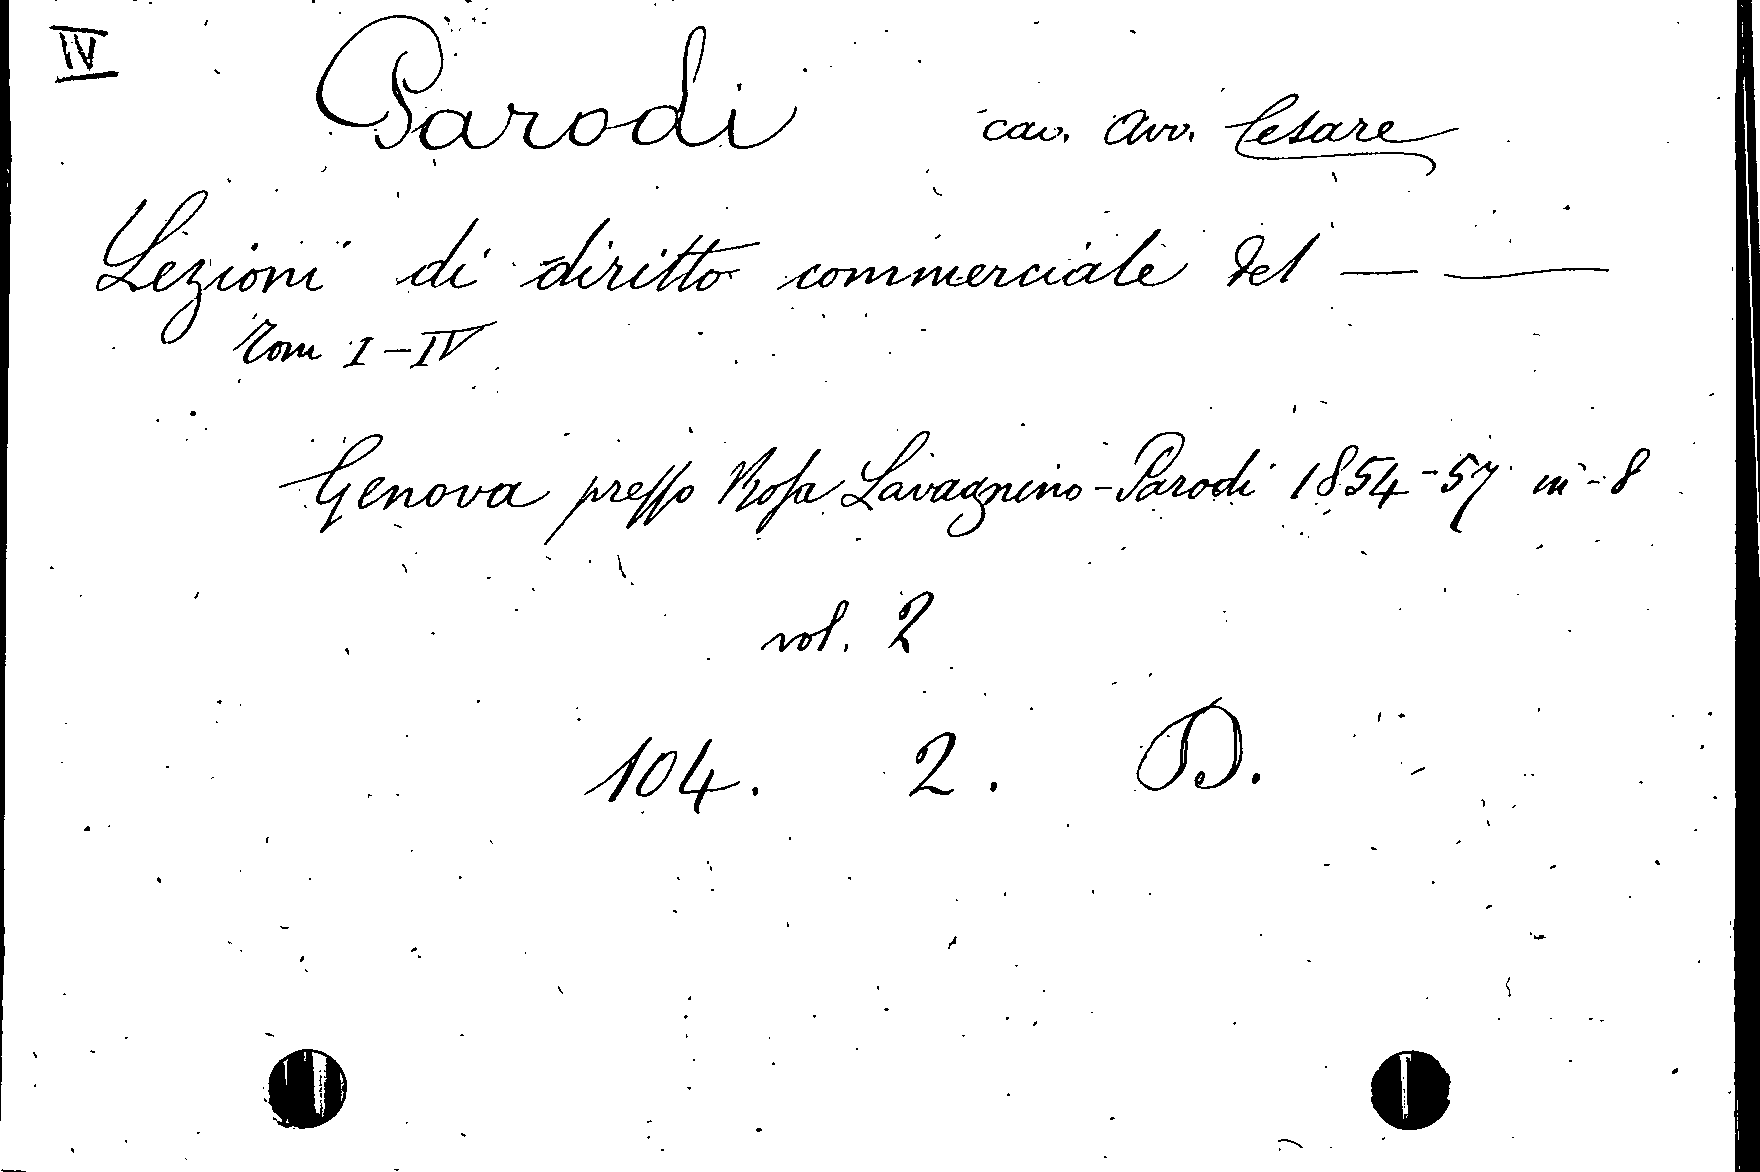 IV
Parodi cav. Avv. Cesare
Lezioni di diritto commerciale del — —
Tom I-IV
Genova presso Rosa Lavagnino-Parodi 1854-57 in-8
vol. 2
104. 2. D.